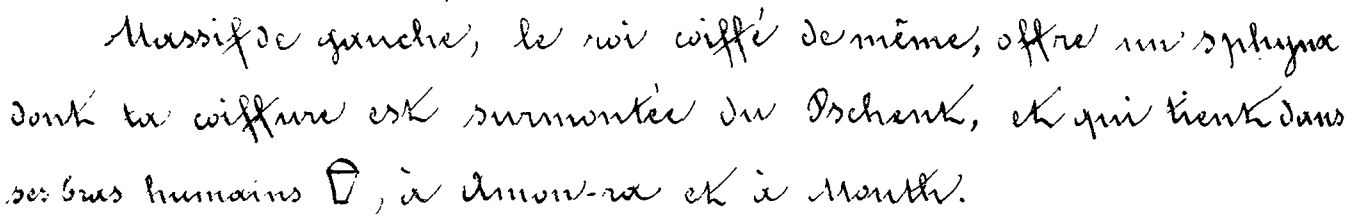 Massif de gauche, le roi coiffé de même, offre un sphynx
dont la coiffure est surmontée du Pschent, et qui tient dans
ses bras humains , à Amon-ra et à Month.